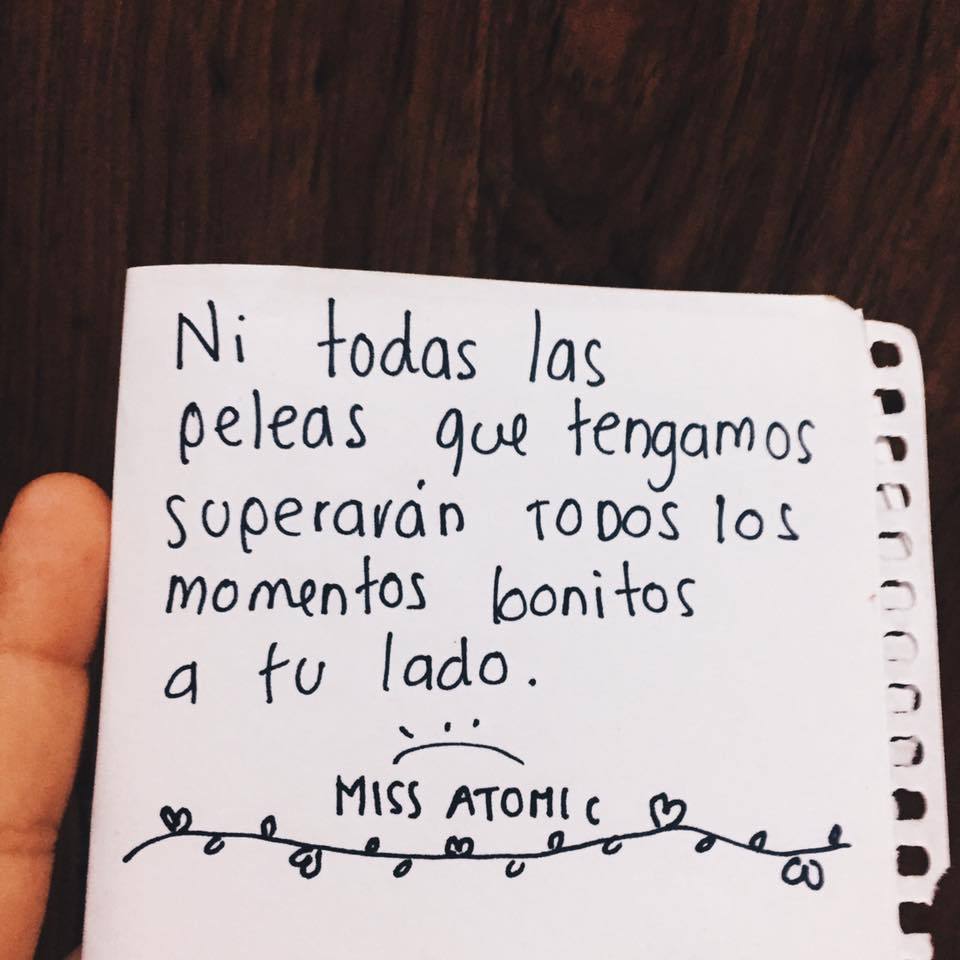 Ni todas las
peleas que tengamos
superarán TODOS los
momentos bonitos
a tu lado.
MISS ATOMIC